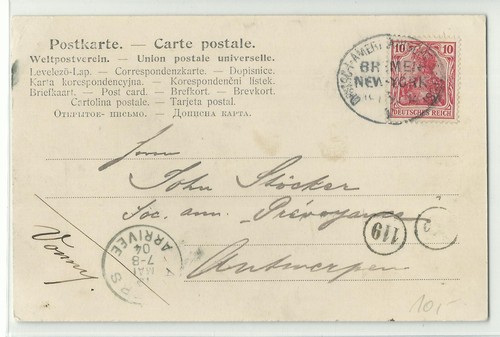 Postkarte. — Carte postale.
Weltpostverein. — Union postale universelle.
Levelező-Lap. — Correspondenzkarte. — Dopisnice.
Karta korespondencyjna. — Korespondenční lístek.
Briefkaart. — Post card. — Brefkort. — Brevkort.
Cartolina postale. — Tarjeta postal.
Открытое письмо. — Дописна карта.
10 10
DEUTSCHES REICH
BREMEN
NEW-YORK
Herrn
John Stöcker
Soc. ann. Prévoyance
Antwerpen
119
2
ARRIVEE
MAI
7-8
04
10,-